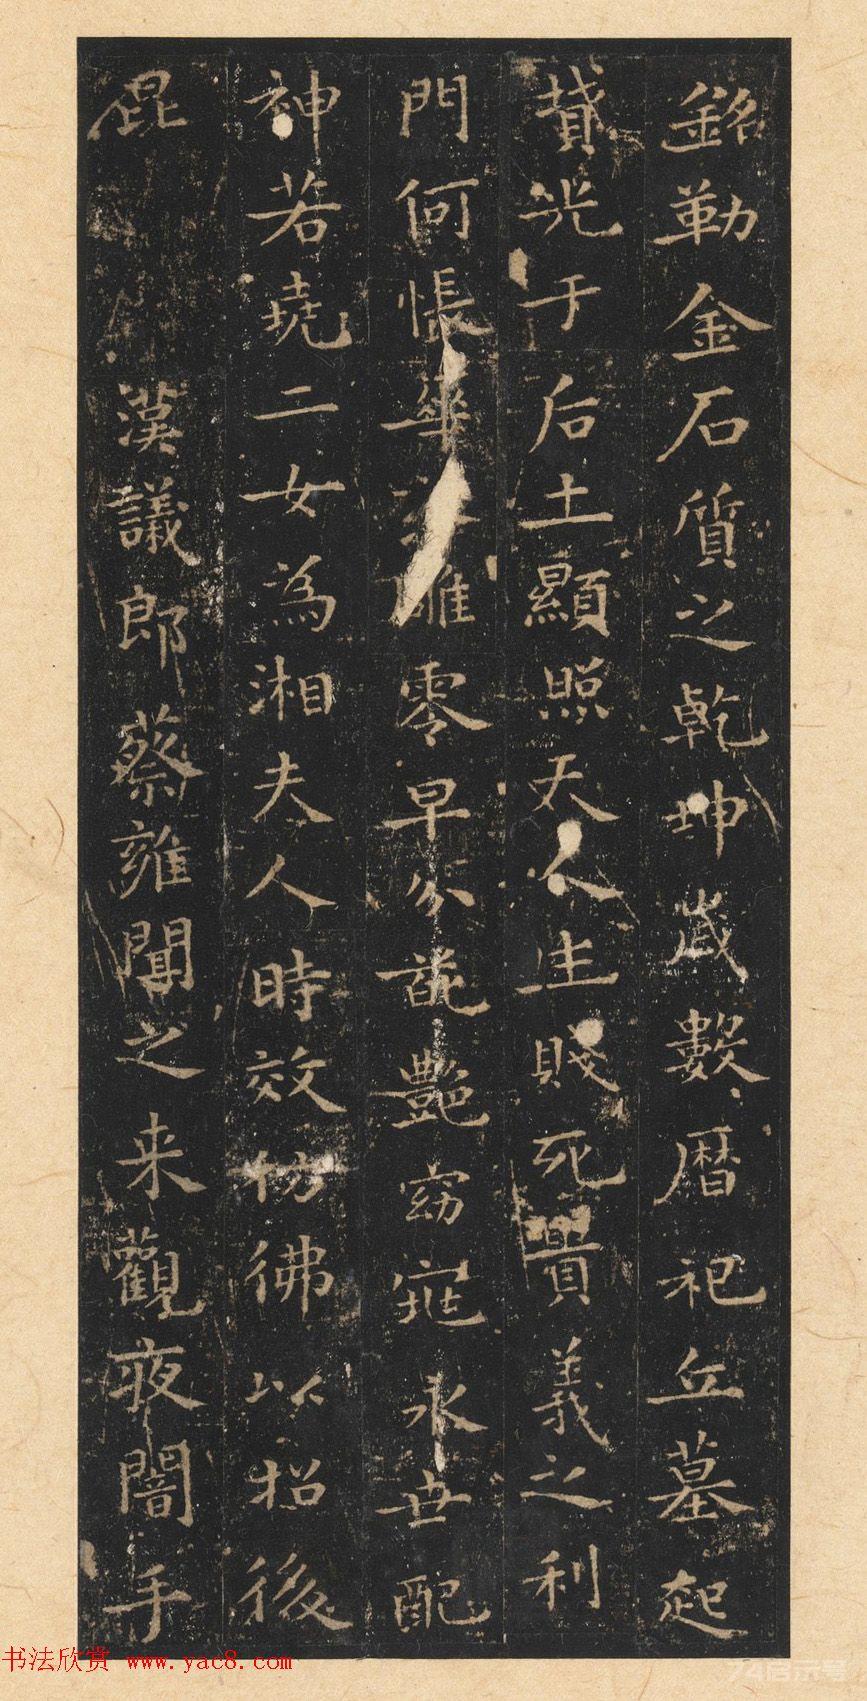 銘勒金石質之乾坤歲數曆祀丘墓起
墳光于后土顯照天人生賤死貴義之利
門何悵華落雕零早分葩艷窈窕永世配
神若堯二女為湘夫人時效彷彿以招後
昆
漢議郎蔡雍聞之来觀夜闇手
书法欣赏 www.yac8.com